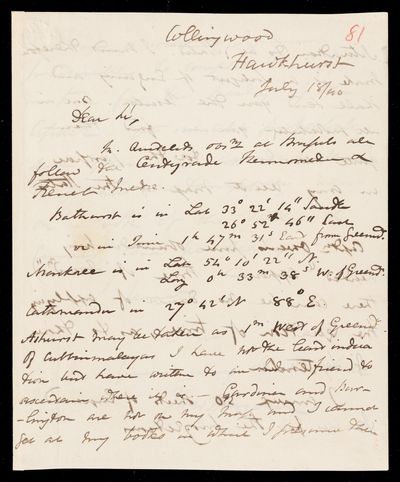 81
Collingwood
Hawkhurst
July 18/40
Dear Sir,
M. Quetelet's obs.ns at Brussels are
follow the Centigrade Thermometer &
French Metre.
Bathurst is in Lat 33° 22' 14" South
26° 52' 46" East
or in Time 1h 47m 31s East from Greenwd.
Markree is in Lat 54° 10' 22" N.
Long 0h 33m 38s W. of Greend.
Cathmandu in 27° 42' N 88° E
Ashurst may be taken as 1m West of Greend.
Of I have not the least indica
tion but have written to a friend to
ascertain where it is – Gardiner and Bur-
-lington are not on my maps and I cannot
get at my books in which I presume their